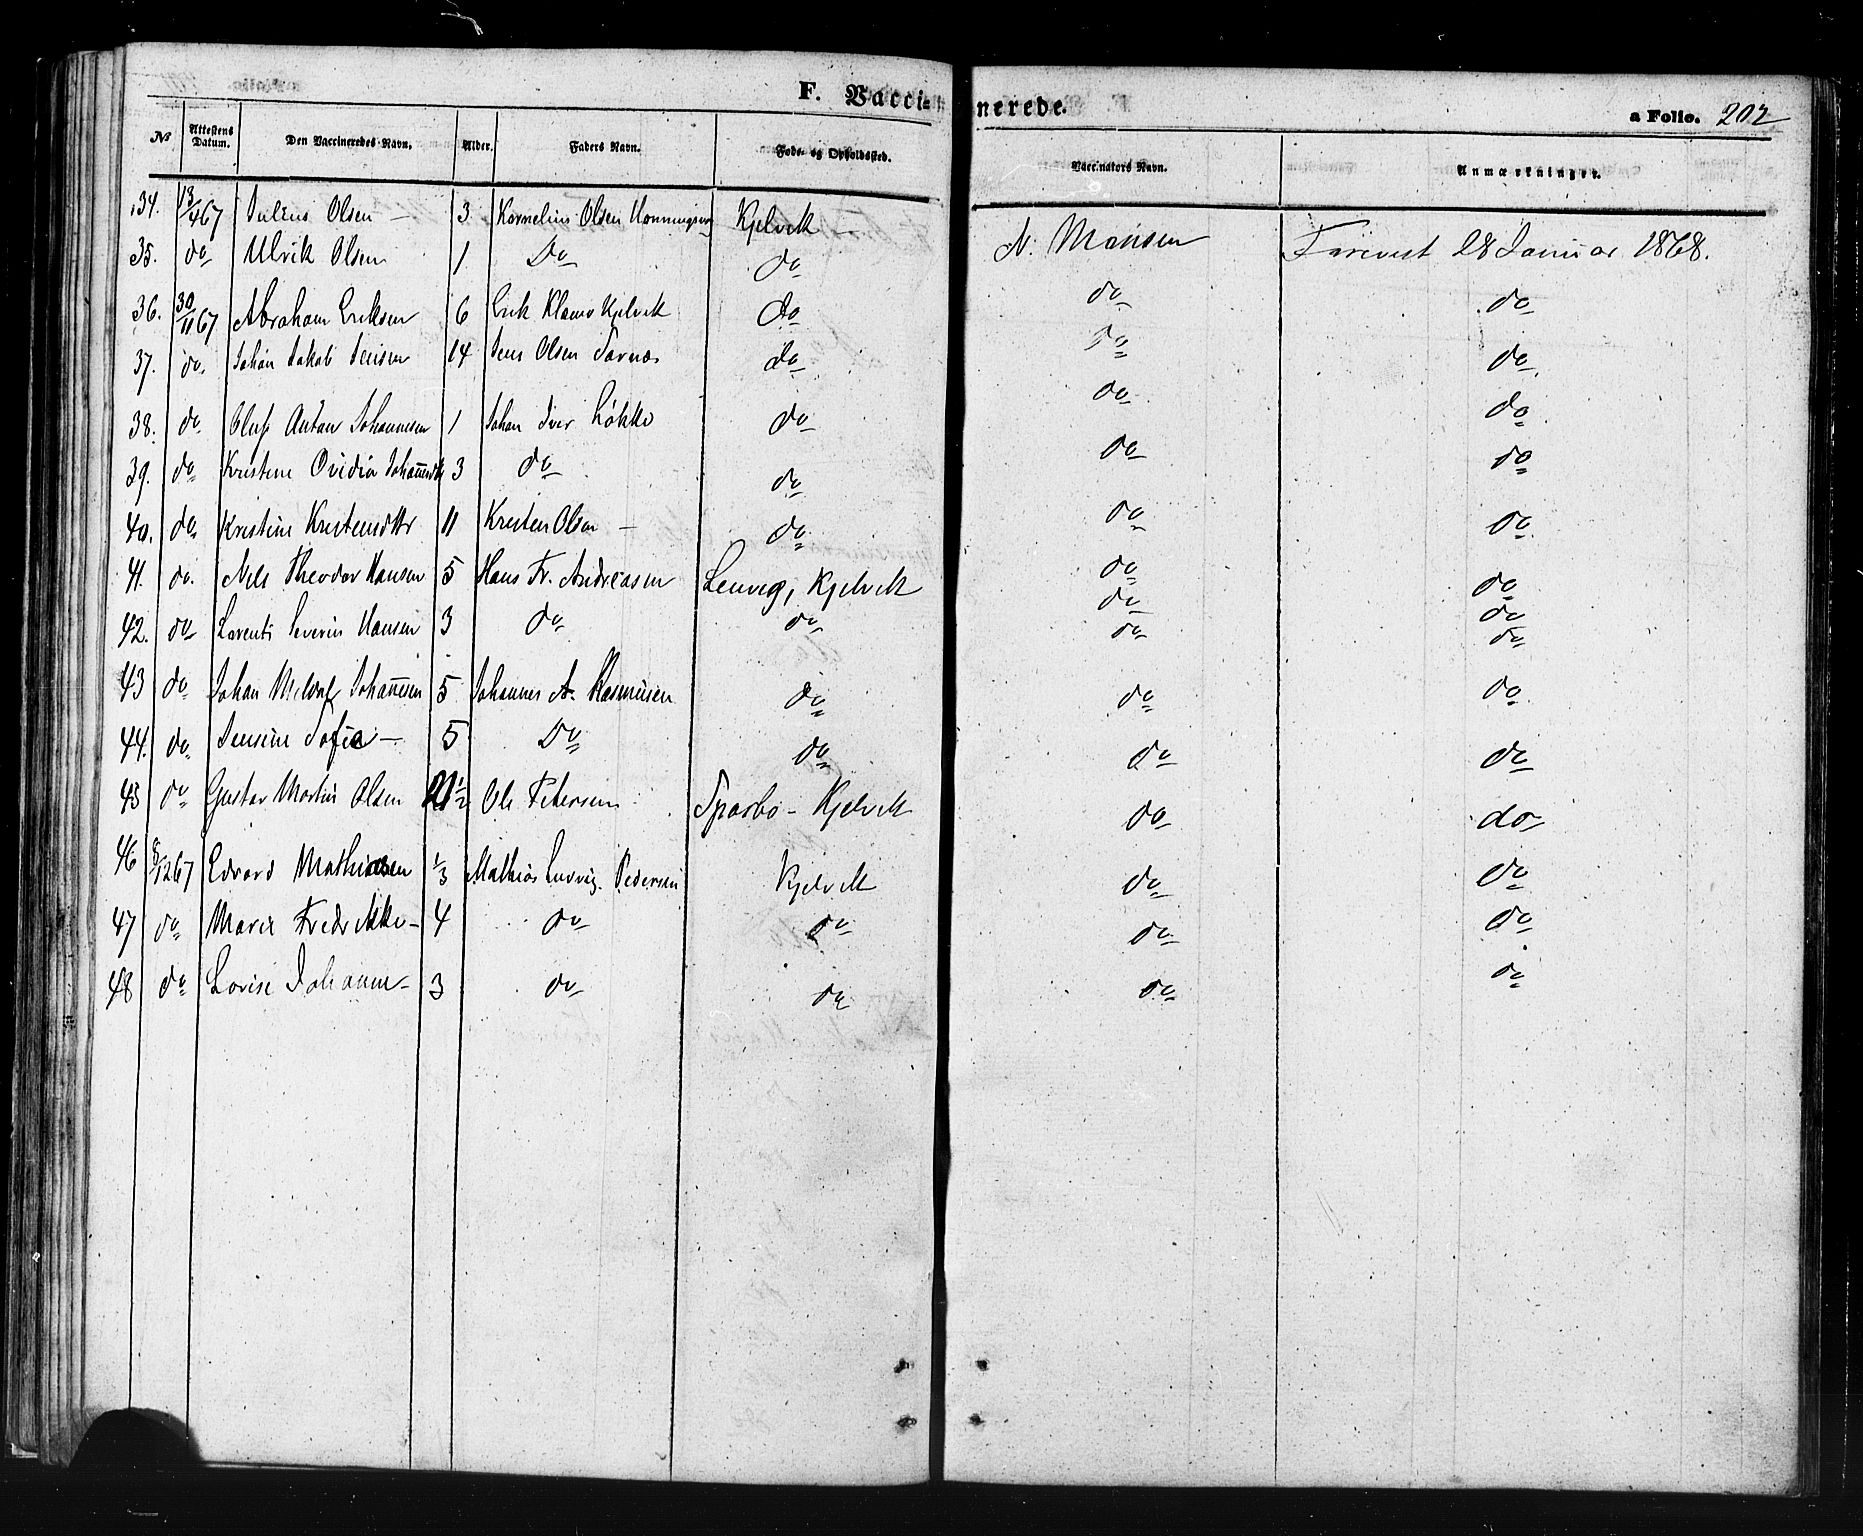 F. Vaccinerede. a Folio. 202
No Attestens Datum. Den Vaccineredes Navn. Alder. Faders Navn. Føde- og Opholdssted. Vaccinators Navn. Anmærkninger.
34. 13/4 67 Julius Olsen — 3 Kornelius Olsen Honningsvog Kjelvik — N. Monsen Forevist 28 Januar 1868.
35. do Ulrik Olsen 1 Do do do do
36. 30/11 67 Abraham Eriksen 6 Erik Kjelvik do do do
37. do. Johan Jakob Jensen 14 Jens Olsen Sarnæs do do do
38. do. Oluf Anton Johannesen 1 Johan Iver Løkke do do do
39. do Kristine Ovidia Johannesdtr 3 do do do do
40. do Kristine Kristensdttr 11 Kristen Olsen — do do do
41. do. Nils Theodor Hansen 5 Hans Fr. Andreasen Kjelvik do do
42. do Lorents Severin Hansen 3 do do do do
do do
43 do Johan Johannesen 5 Johannes A. Rasmusen do do do
44. do Jensine Sofie — 5 Do do do do
45 do Gustav Martin Olsen 1/2 Ole Petersen Kjelvik do do
46 8/12 67 Edvard Mathiasen 1/3 Mathias Ludvig Pedersen Kjelvik do do
47 do Marie Fredrikke — 4 do do do do
48 do Lovise Johanne — 3 do do do do